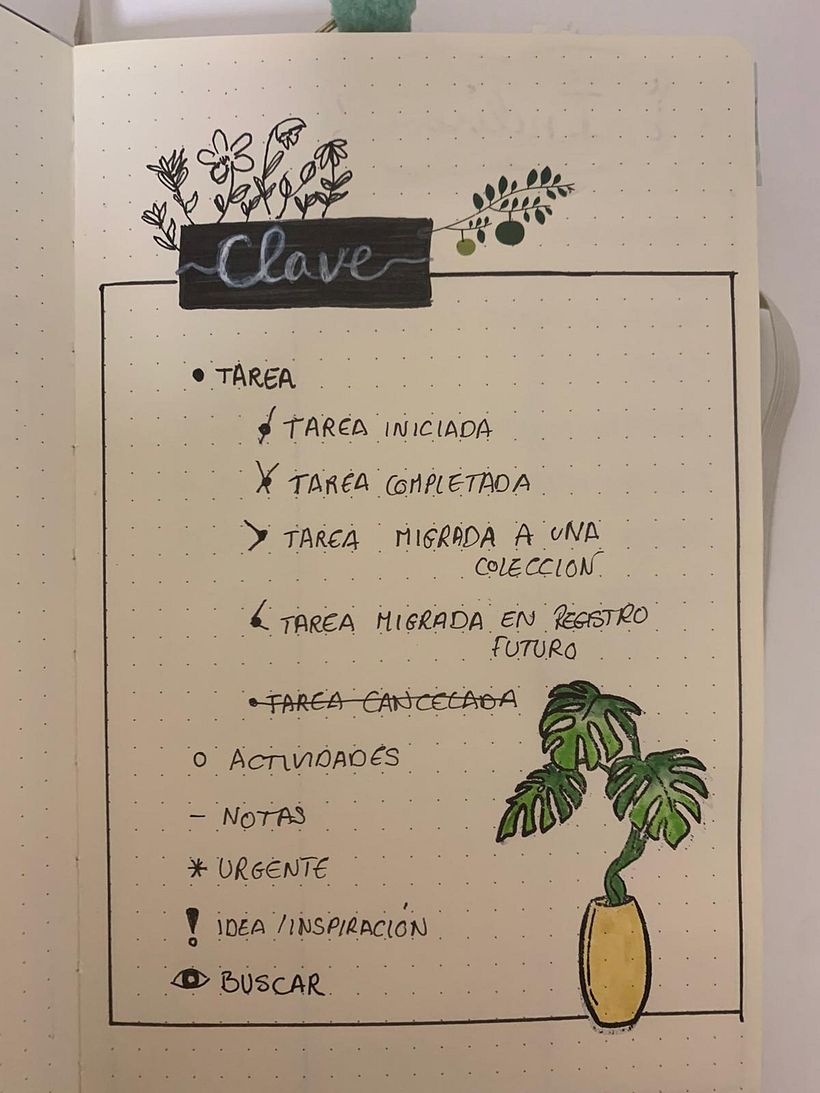 Clave
• TAREA
TAREA INICIADA
TAREA COMPLETADA
> TAREA MIGRADA A UNA
COLECCION
< TAREA MIGRADA EN REGISTRO
FUTURO
• TAREA CANCELADA
o ACTIVIDADES
- NOTAS
* URGENTE
! IDEA / INSPIRACIÓN
BUSCAR